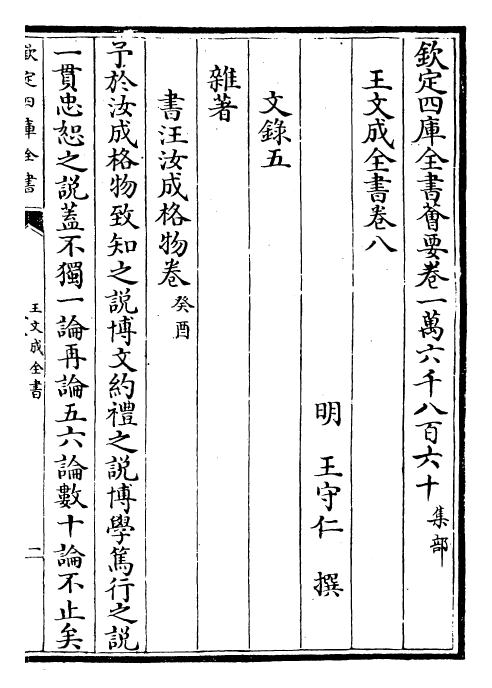 欽定四庫全書薈要卷一萬六千八百六十 集部
王文成全書卷八
明 王守仁 撰
文錄五
雜著
書汪汝成格物卷 癸酉
予於汝成格物致知之說博文約禮之說博學篤行之說
一貫忠恕之說蓋不獨一論再論五六論數十論不止矣
欽定四庫全書
王文成全書